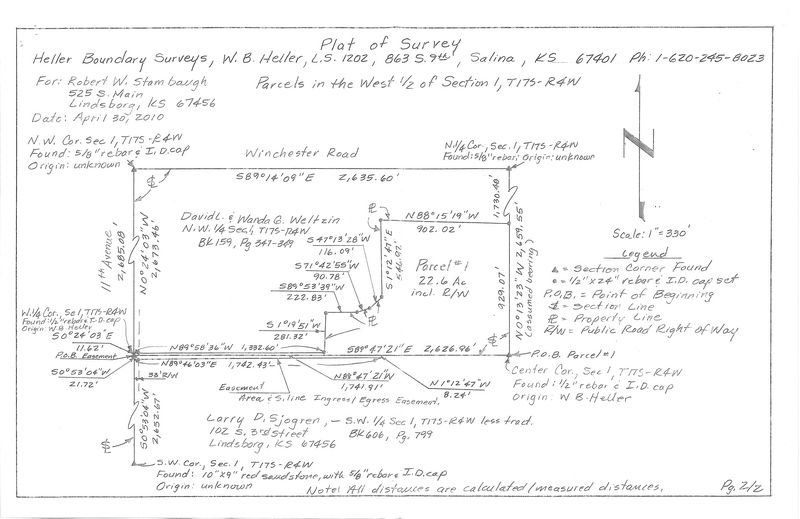 Plat of Survey
Heller Boundary Surveys, W. B. Heller, L.S. 1202, 863 S. 9th, Salina, KS 67401 Ph: 1-620-245-8023
For: Robert W. Stambaugh
525 S. Main
Lindsborg, KS 67456
Date: April 30, 2010
Parcels in the West 1/2 of Section 1, T17S-R4W
N.W. Cor. Sec 1, T17S-R4W
Found: 5/8" rebar & I.D. cap
Origin: unknown
N 1/4 Cor., Sec. 1, T17S-R4W
Found: 5/8" rebar; Origin: unknown
Winchester Road
S89°14'09"E 2,635.60'
N
Scale: 1" = 330'
Legend
▲ = Section Corner Found
● = 1/2" x 24" rebar & I.D. cap set
P.O.B. = Point of Beginning
SL = Section Line
PL = Property Line
R/W = Public Road Right of Way
11th Avenue
2,685.08'
N0°24'03"W
2,673.46'
David L. & Wanda G. Weltzin
N.W. 1/4 Sec. 1, T17S-R4W
BK 159, Pg 347-349
S47°13'28"W
116.09'
S71°42'55"W
90.78'
S89°53'39"W
222.83'
S1°19'51"W
281.32'
PL
S1°12'47"E
546.92'
N88°15'19"W
902.02'
Parcel #1
22.6 Ac
incl. R/W
1,730.48'
929.07'
N0°13'23"W 2,659.55'
(assumed bearing)
W. 1/4 Cor., Sec 1, T17S-R4W
Found: 1/2" rebar & I.D. cap
Origin: W. B. Heller
S0°24'03"E
11.62'
P.O.B. Easement
S0°53'04"W
21.72'
N89°58'36"W 1,332.60'
S89°47'21"E 2,626.96'
P.O.B. Parcel #1
N89°46'03"E 1,742.43'
33' R/W
N89°47'21"W
1,741.91'
N1°12'47"W
8.24'
Easement
Area & S. line Ingress/Egress Easement
Center Cor., Sec 1, T17S-R4W
Found: 1/2" rebar & I.D. cap
Origin: W B. Heller
Larry D. Sjogren, - S.W. 1/4 Sec 1, T17S-R4W less tract.
102 S. 3rd Street BK 606, Pg. 799
Lindsborg, KS 67456
S0°53'04"W
2,652.67'
S.W. Cor., Sec. 1, T17S-R4W
Found: 10"x9" red sandstone, with 5/8" rebar & I.D. cap
Origin: unknown
Note: All distances are calculated/measured distances.
Pg. 2/2